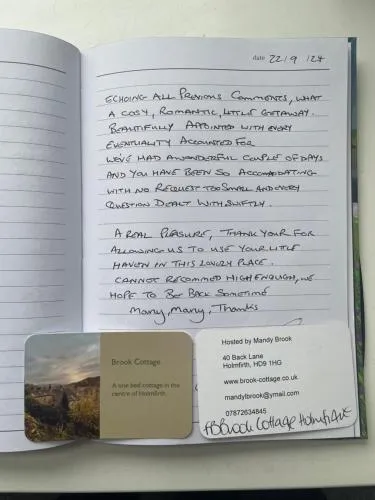 date 22/9/24
ECHOING ALL PREVIOUS COMMENTS, WHAT
A COSY, ROMANTIC, LITTLE GETAWAY.
BEAUTIFULLY APPOINTED WITH EVERY
EVENTUALITY ACCOUNTED FOR
WE'VE HAD A WONDERFUL COUPLE OF DAYS
AND YOU HAVE BEEN SO ACCOMADATING
WITH NO REQUEST TOO SMALL AND EVERY
QUESTION DEALT WITH SWIFTLY.
A REAL PLEASURE, THANK YOUR FOR
ALLOWING US TO USE YOUR LITTLE
HAVEN IN THIS LOVELY PLACE.
CANNOT RECOMMED HIGH ENOUGH, WE
HOPE TO BE BACK SOMETIME
Many, Many, Thanks
Brook Cottage
A one bed cottage in the
centre of Holmfirth.
Hosted by Mandy Brook
40 Back Lane
Holmfirth, HD9 1HG
www.brook-cottage.co.uk
mandylbrook@ymail.com
07872634845
FB Brook Cottage Holmfirth